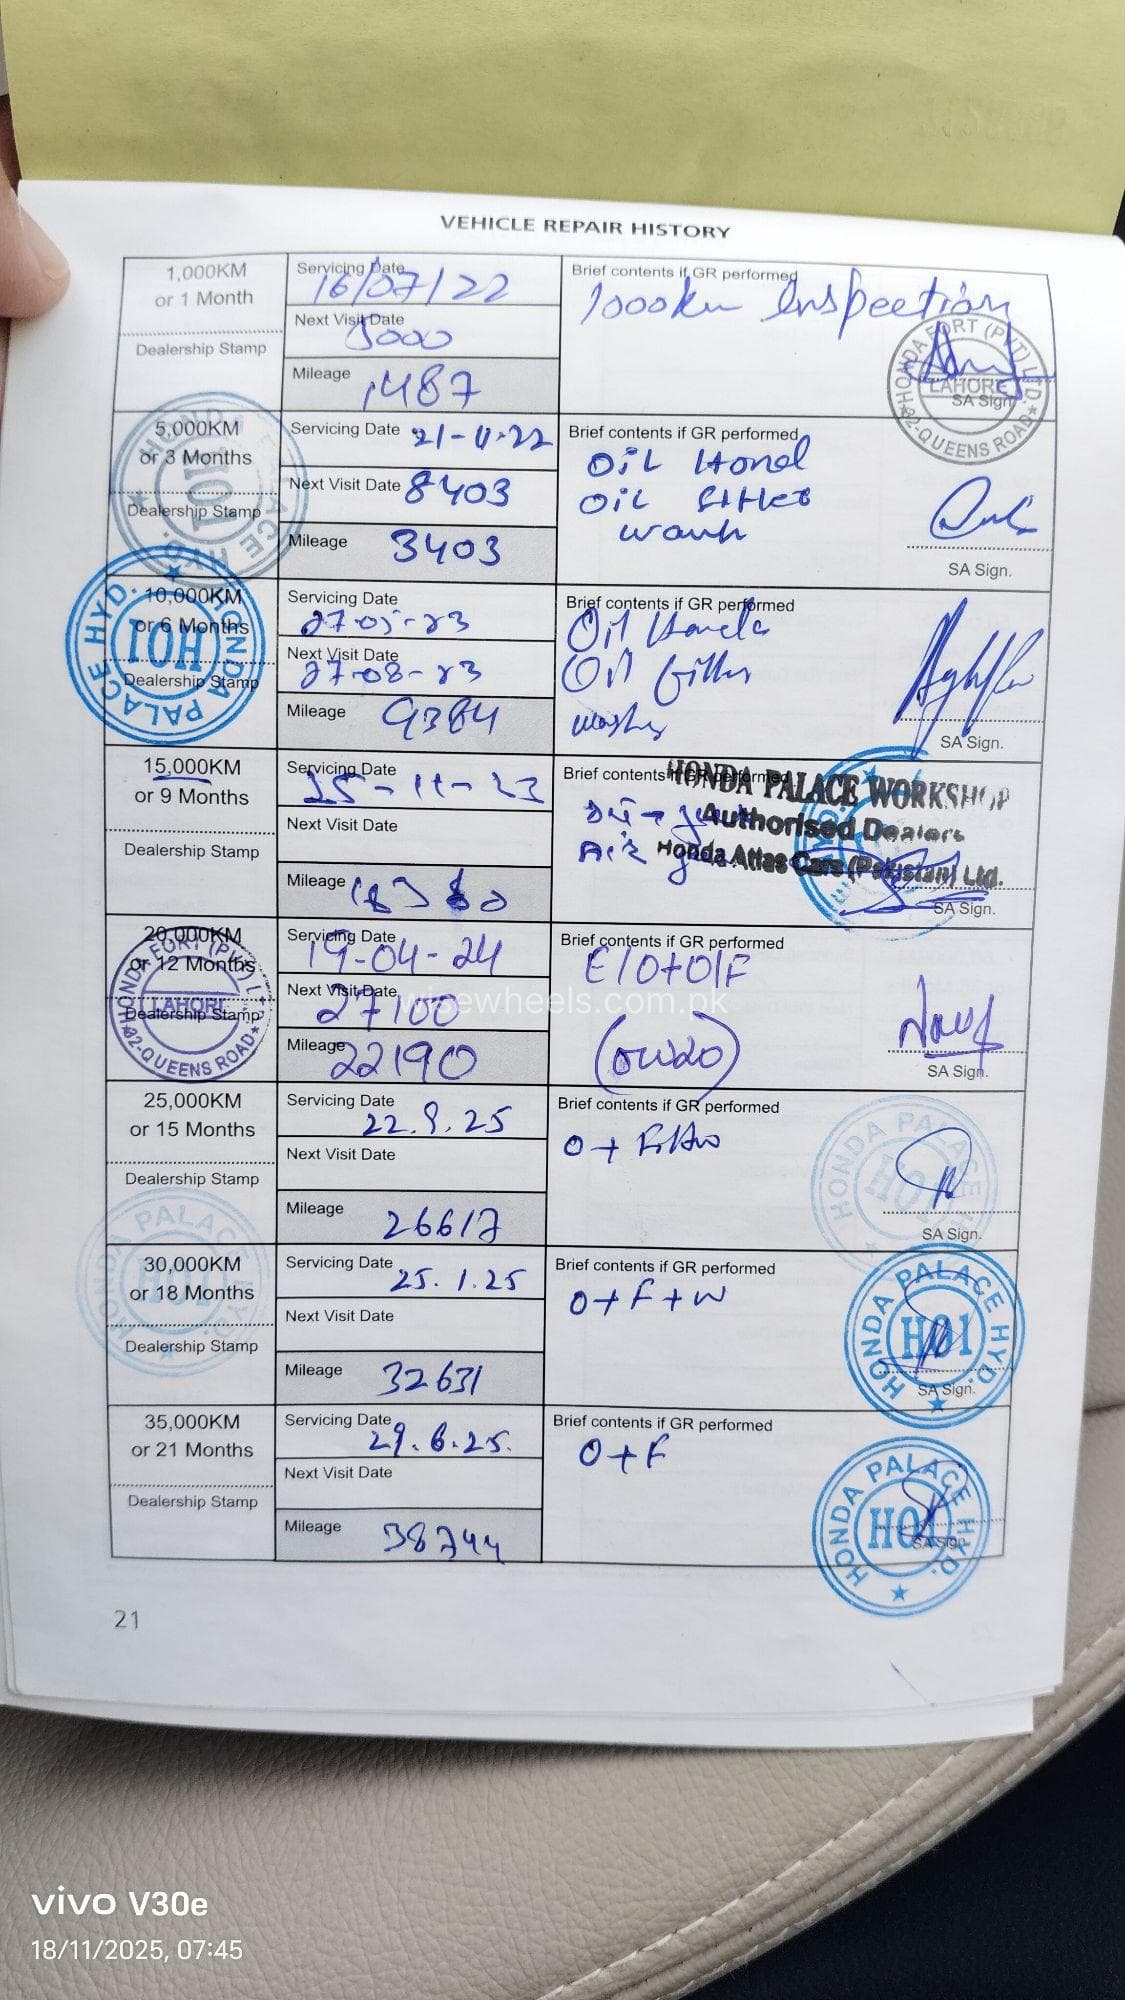 VEHICLE REPAIR HISTORY
1,000KM
or 1 Month
Dealership Stamp
Servicing Date
16/07/22
Next Visit Date
5000
Mileage
1487
Brief contents if GR performed
1000km Inspection
HONDA FORT (PVT) LTD.
LAHORE
32-QUEENS ROAD
SA Sign.
5,000KM
or 3 Months
Dealership Stamp
Servicing Date 21-11-22
Next Visit Date 8403
Mileage 3403
Brief contents if GR performed
Oil Hond
Oil
SA Sign.
10,000KM
or 6 Months
Dealership Stamp
HONDA PALACE HYD.
H01
Servicing Date
27-05-23
Next Visit Date
27-08-23
Mileage 9384
Brief contents if GR performed
Oil
Oil filter
SA Sign.
15,000KM
or 9 Months
Dealership Stamp
Servicing Date
25-11-23
Next Visit Date
Mileage
Brief contents if GR performed
Air
HONDA PALACE WORKSHOP
Authorised Dealers
Honda Atlas Cars (Pakistan) Ltd.
SA Sign.
20,000KM
or 12 Months
Dealership Stamp
HONDA FORT (PVT) LTD.
LAHORE
32-QUEENS ROAD
Servicing Date
19-04-24
Next Visit Date
27100
Mileage
22190
Brief contents if GR performed
E/O+O/F
(0W20)
SA Sign.
wisewheels.com.pk
25,000KM
or 15 Months
Dealership Stamp
Servicing Date
22.9.25
Next Visit Date
Mileage
26617
Brief contents if GR performed
O + Filter
HONDA PALACE
H01
SA Sign.
30,000KM
or 18 Months
Dealership Stamp
HONDA PALACE HYD.
H01
Servicing Date
25.1.25
Next Visit Date
Mileage
32631
Brief contents if GR performed
O+F+W
HONDA PALACE HYD.
H01
SA Sign.
35,000KM
or 21 Months
Dealership Stamp
Servicing Date
29.6.25.
Next Visit Date
Mileage
38744
Brief contents if GR performed
O+F
HONDA PALACE HYD.
H01
SA Sign.
21
vivo V30e
18/11/2025, 07:45